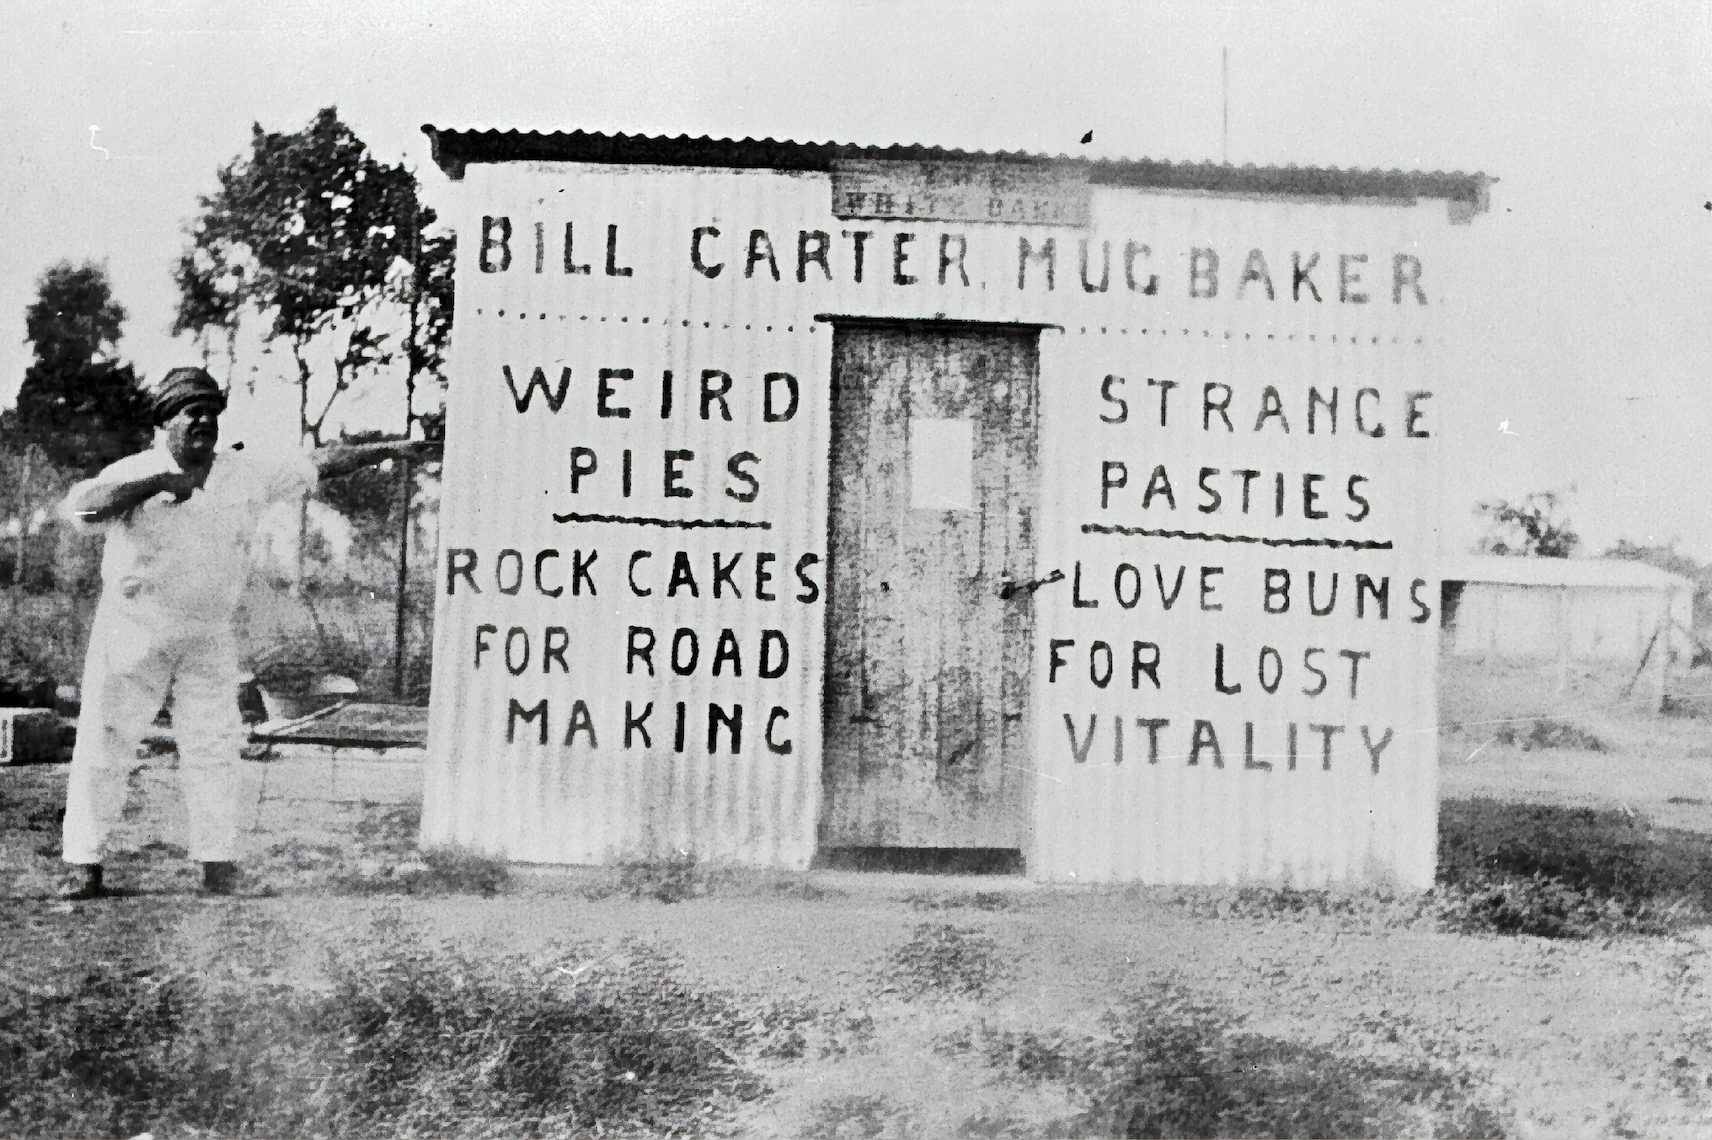 BILL CARTER. MUG BAKER.
WEIRD
PIES
ROCK CAKES
FOR ROAD
MAKING
STRANGE
PASTIES
LOVE BUNS
FOR LOST
VITALITY